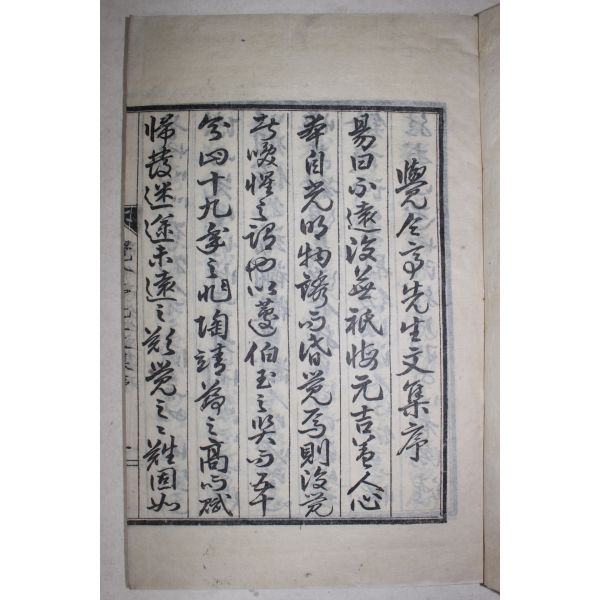 覺今亭先生文集序
易曰不遠復無祇悔元吉盖人心
本自光明物誘而昏覺焉則復覺
者喚惺之謂也以蘧伯玉之賢而五十
知四十九年之非陶靖節之高而賦
歸發迷途未遠之歎覺之之難固如